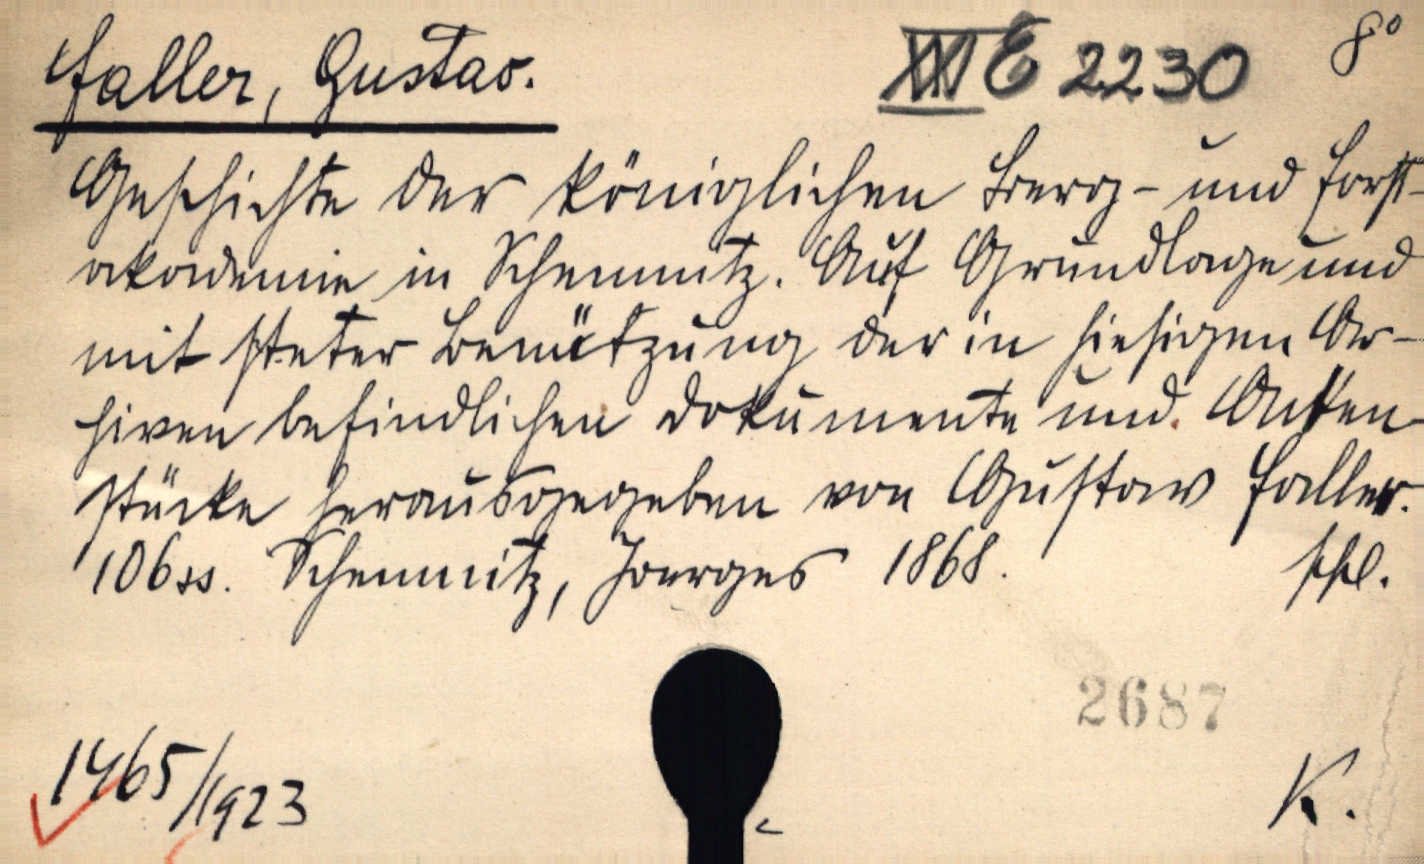 Faller, Gustav. XXI E 2230 8°
Geschichte der königlichen Berg- und Forst-
akademie in Schemnitz. Auf Grundlage und
mit steter Benützung der in hiesigen Ar-
hiven befindlichen Dokumente und Akten-
stücke herausgegeben von Gustav Faller.
106 ss. Schemnitz, Joerges 1868.
2687
1465/1923 K.